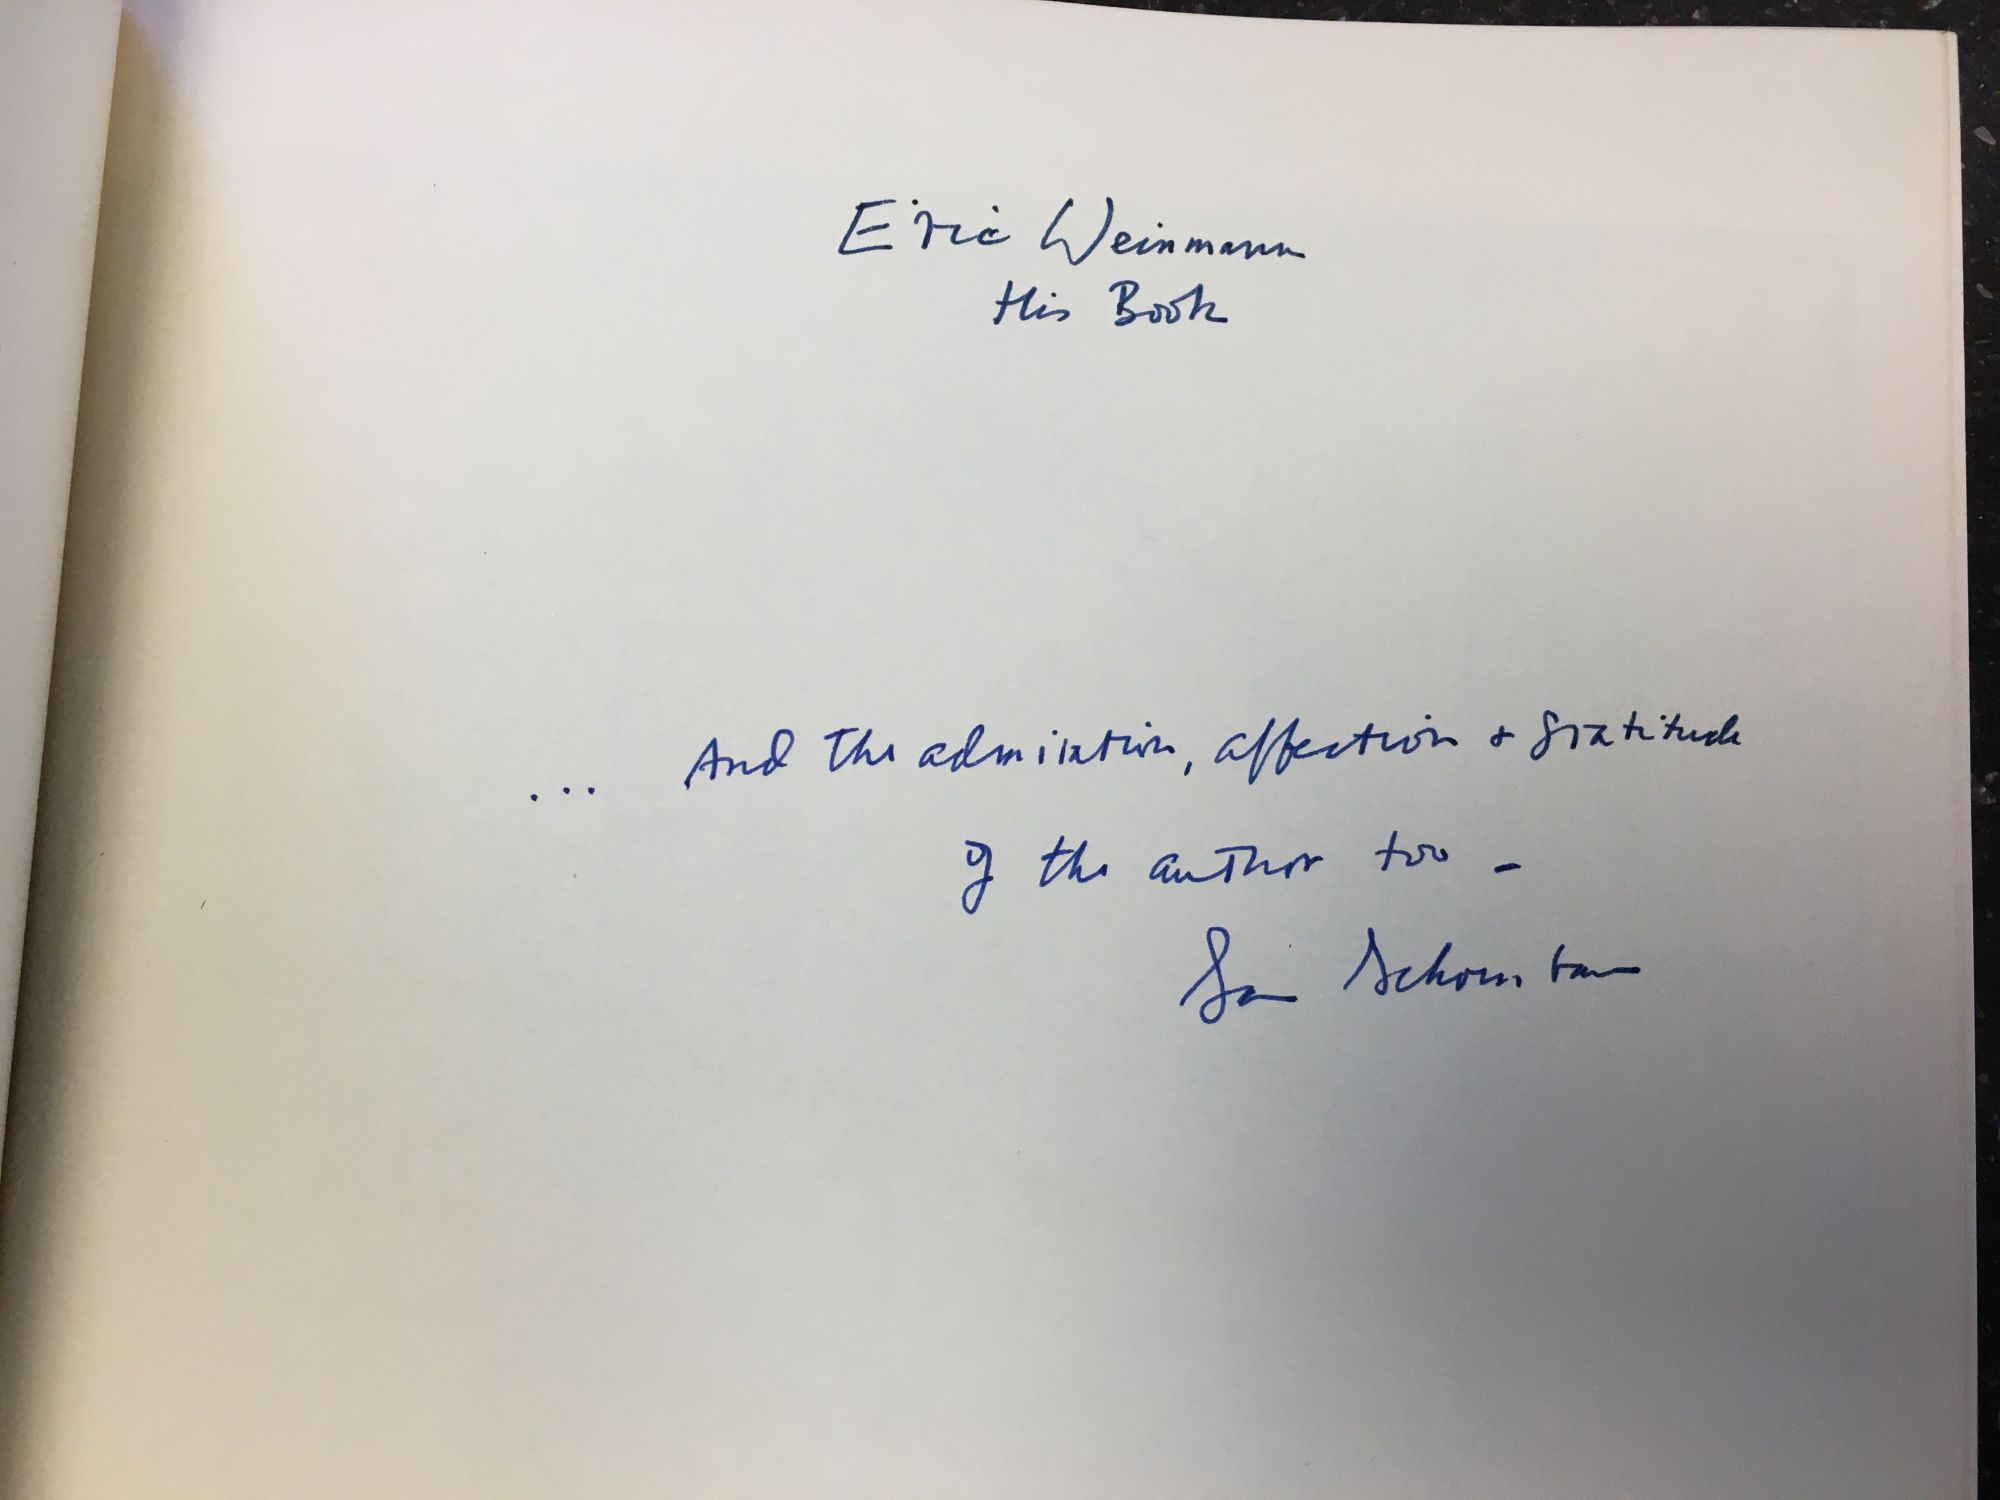 Eric Weinmann
His Book
... And The admiration, affection & gratitude
of the author too -
Sam Schoenbaum